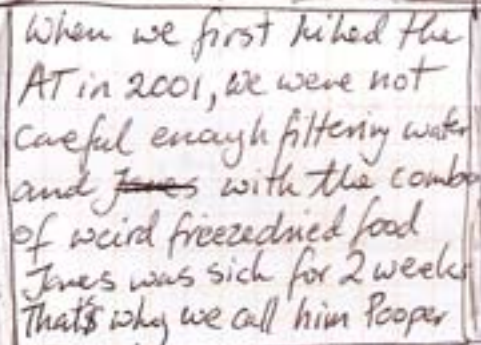 When we first hiked the
AT in 2001, we were not
careful enough filtering water
and Jones with the combo
of weird freezedried food
Jones was sick for 2 weeks
That's why we call him Pooper